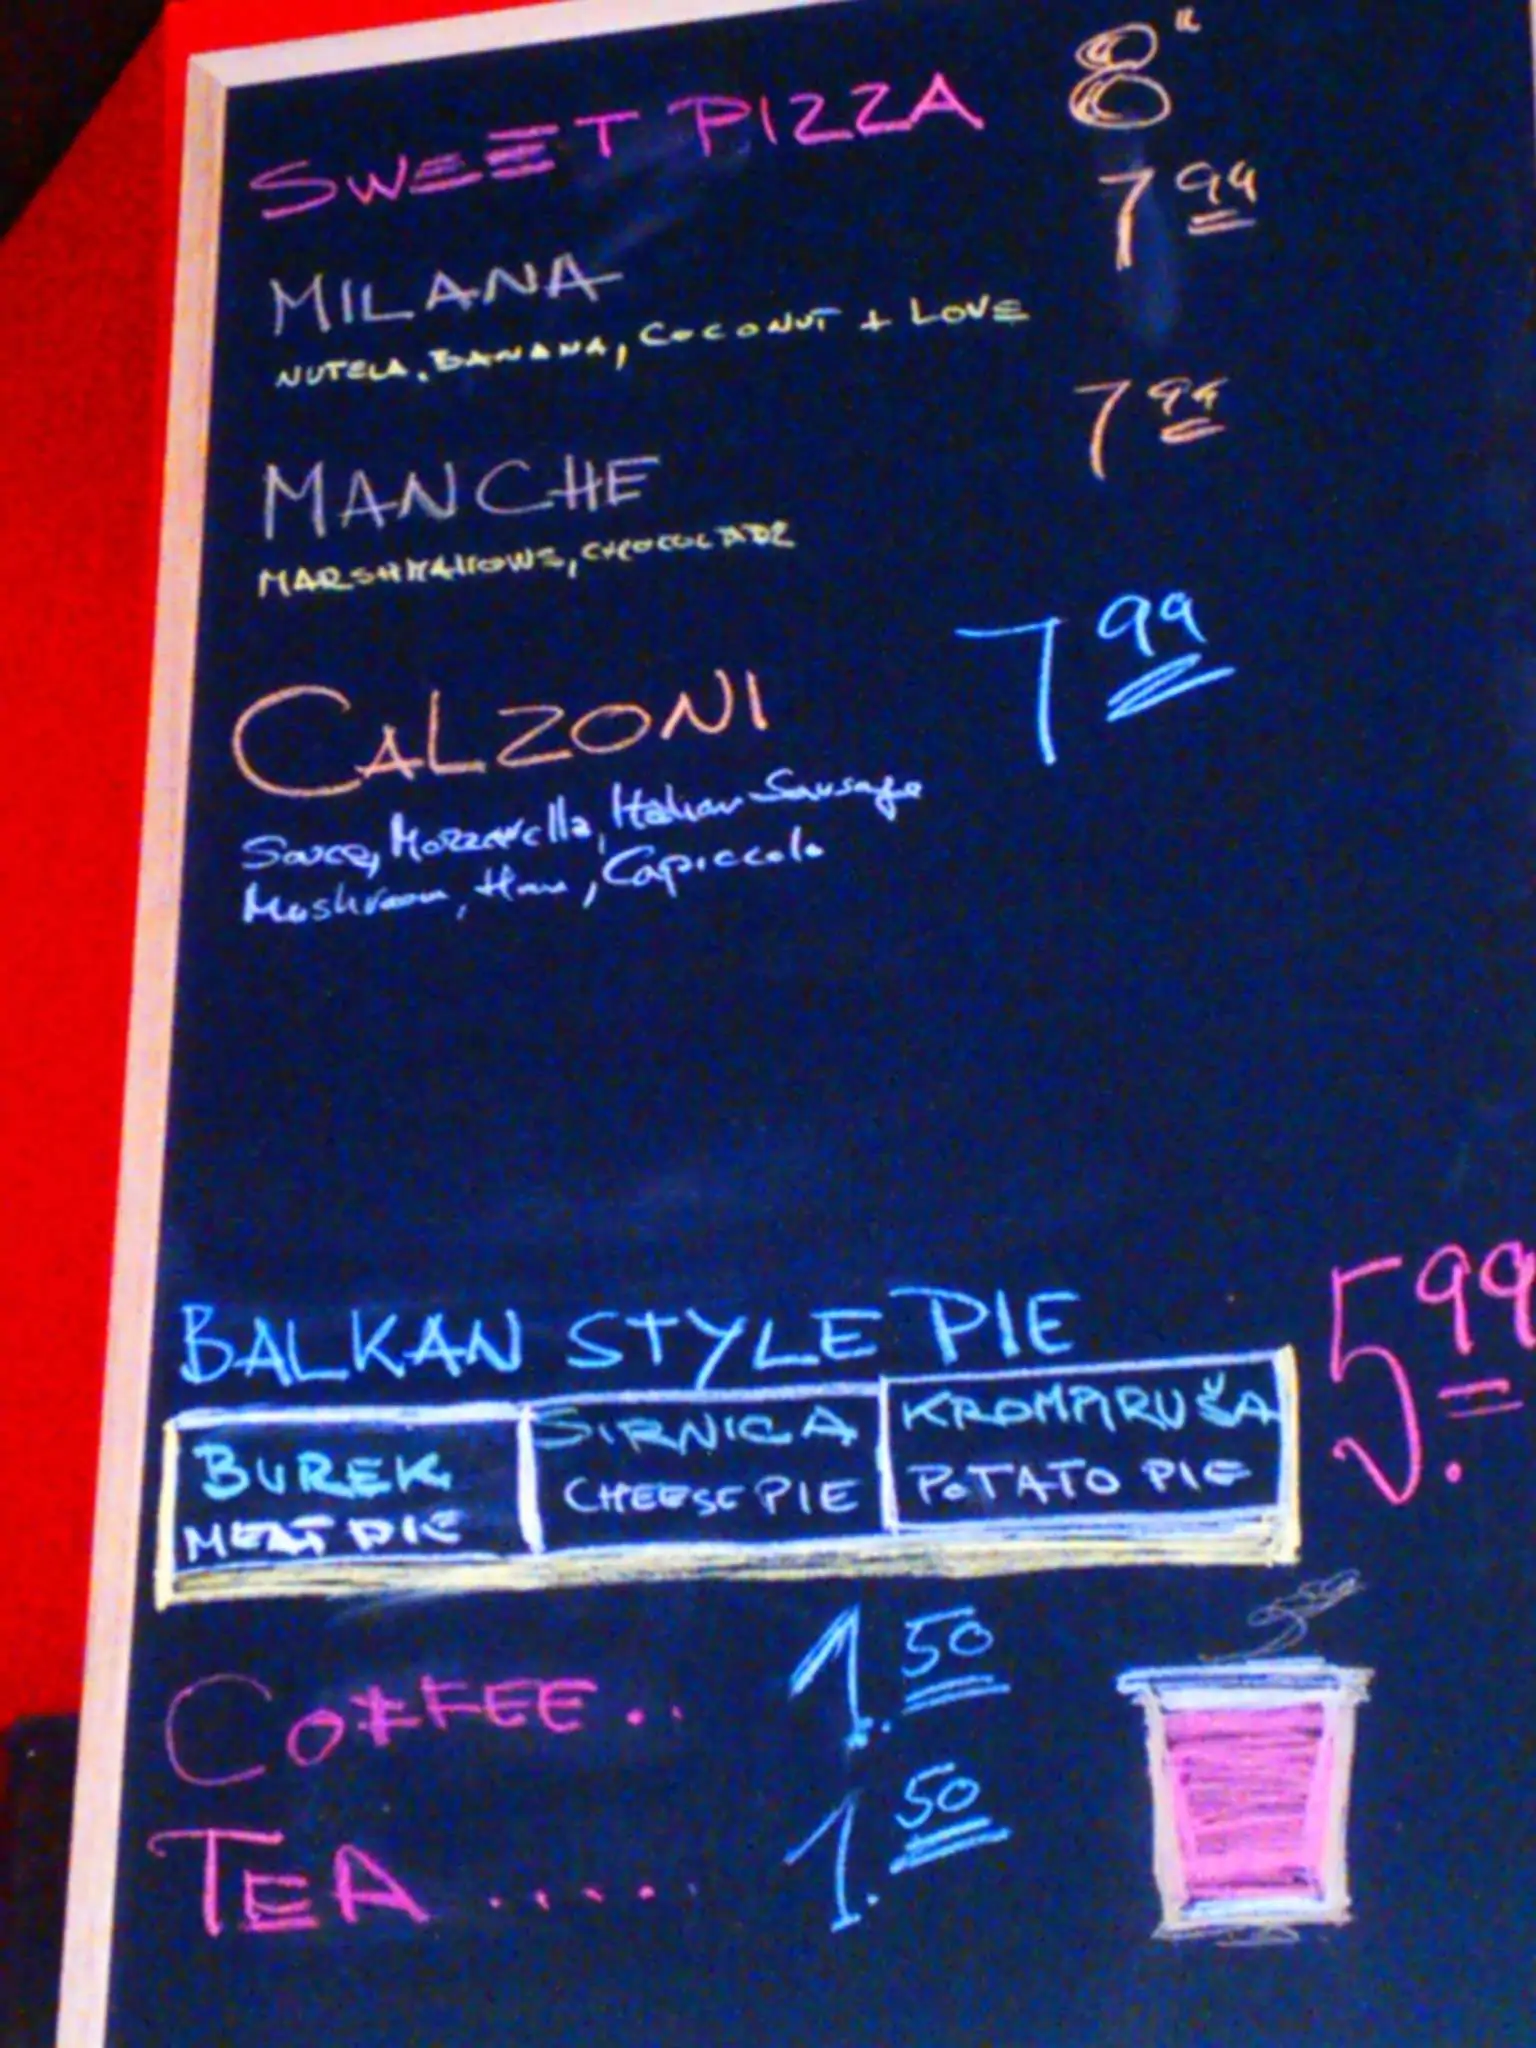 SWEET PIZZA 8"
MILANA 7 99
NUTELA, BANANA, COCONUT + LOVE
MANCHE 7 99
MARSHMALLOWS, CHOCOLADE
CALZONI 7 99
Sauce, Mozzarella, Italian Sausage
Mushroom, Ham, Capiccolo
BALKAN STYLE PIE 5.99
BUREK
MEAT PIE
SIRNICA
CHEESE PIE
KROMPIRUŠA
POTATO PIE
COFFEE.. 1.50
TEA..... 1.50